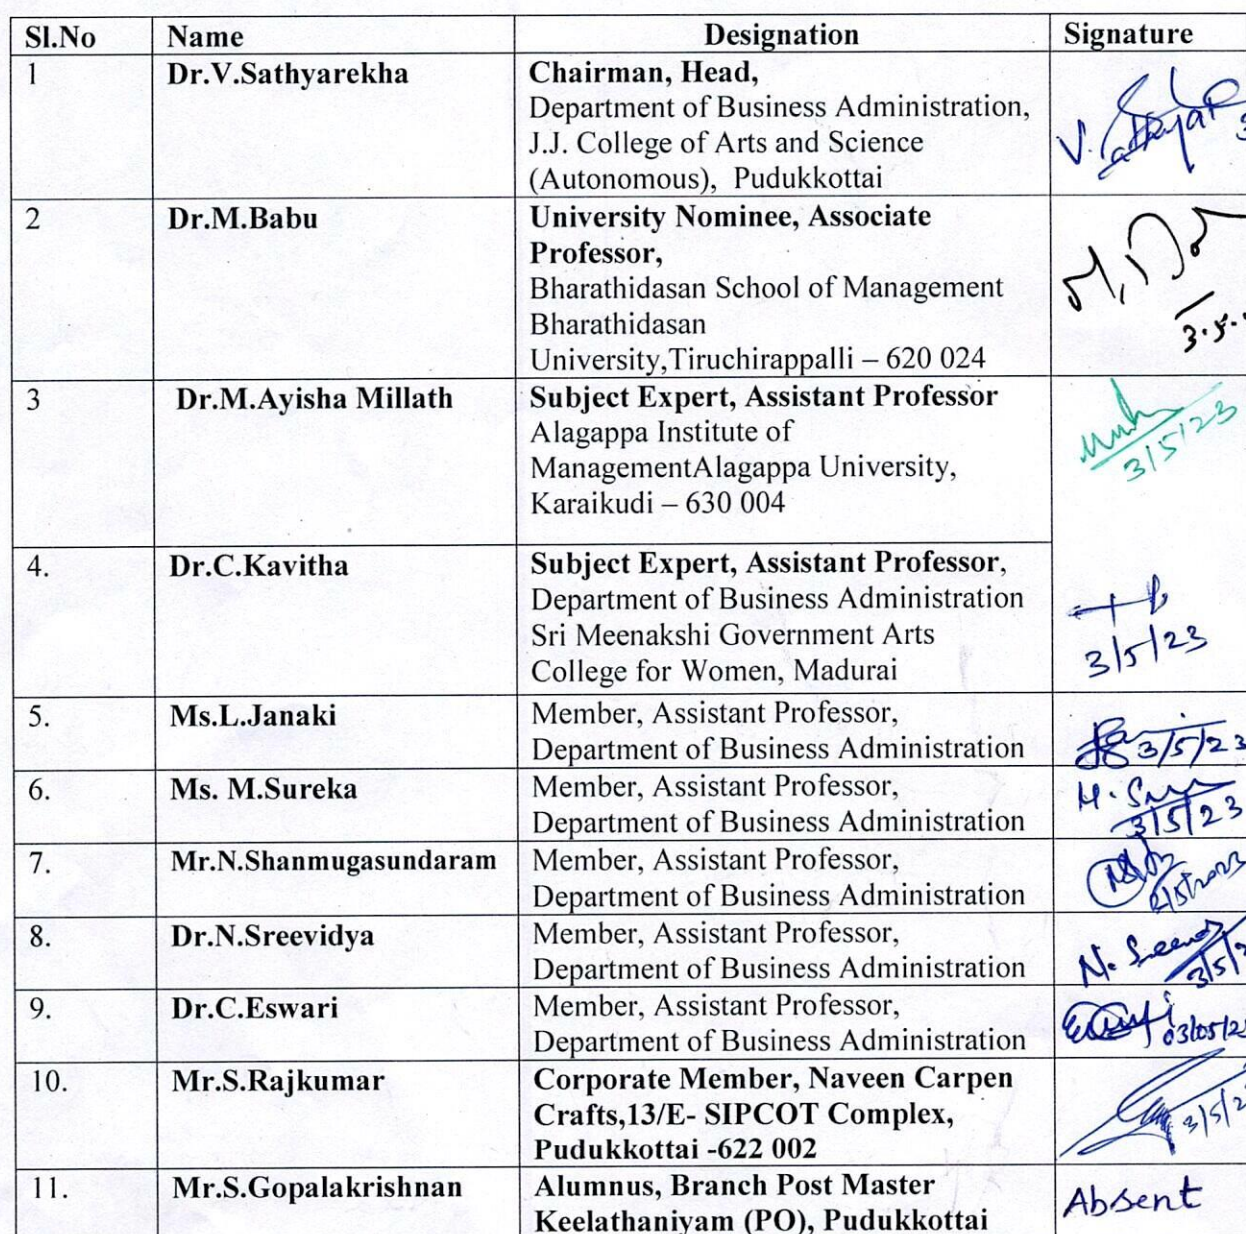 Sl.No Name Designation Signature
1 Dr.V.Sathyarekha Chairman, Head,
Department of Business Administration,
J.J. College of Arts and Science
(Autonomous), Pudukkottai
2 Dr.M.Babu University Nominee, Associate
Professor,
Bharathidasan School of Management
Bharathidasan
University,Tiruchirappalli – 620 024
3.5.
3 Dr.M.Ayisha Millath Subject Expert, Assistant Professor
Alagappa Institute of
ManagementAlagappa University,
Karaikudi – 630 004
3/5/23
4. Dr.C.Kavitha Subject Expert, Assistant Professor,
Department of Business Administration
Sri Meenakshi Government Arts
College for Women, Madurai
3/5/23
5. Ms.L.Janaki Member, Assistant Professor,
Department of Business Administration 3/5/23
6. Ms. M.Sureka Member, Assistant Professor,
Department of Business Administration 3/5/23
7. Mr.N.Shanmugasundaram Member, Assistant Professor,
Department of Business Administration
8. Dr.N.Sreevidya Member, Assistant Professor,
Department of Business Administration 3/5/
9. Dr.C.Eswari Member, Assistant Professor,
Department of Business Administration 03/05/2
10. Mr.S.Rajkumar Corporate Member, Naveen Carpen
Crafts,13/E- SIPCOT Complex, 3/5/2
Pudukkottai -622 002
11. Mr.S.Gopalakrishnan Alumnus, Branch Post Master Absent
Keelathaniyam (PO), Pudukkottai